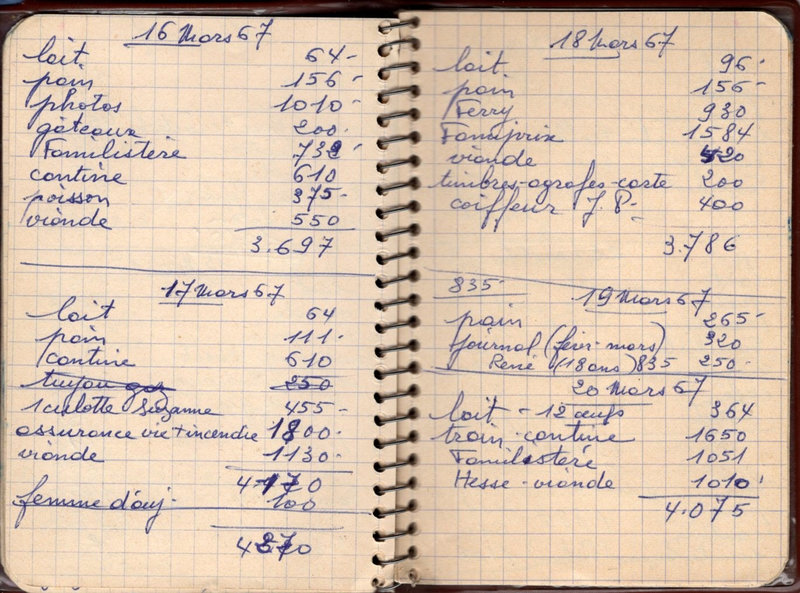 16 Mars 67
lait 64-
pain 156-
photos 1010-
gâteaux 200.
Familistère 732-
cantine 610
poisson 375-
viande 550
3.697
17 Mars 67
lait 64
pain 111-
cantine 610
250
1 culotte Suzanne 455-
assurance vie + incendie 1800.
viande 1130-
4170
femme d'ouj. 100
4270
18 Mars 67
lait 96-
pain 156-
Ferry 930
Familiprix 1584
viande 420
timbres-agrafes-carte 200
coiffeur J.P- 400
3.786
835-
19 Mars 67
pain 265-
journal (févr-mars) 320
René (18 ans) 835 250-
20 Mars 67
lait - 12 œufs 364
train-cantine 1650
Familistère 1051
Hesse-viande 1010
4.075